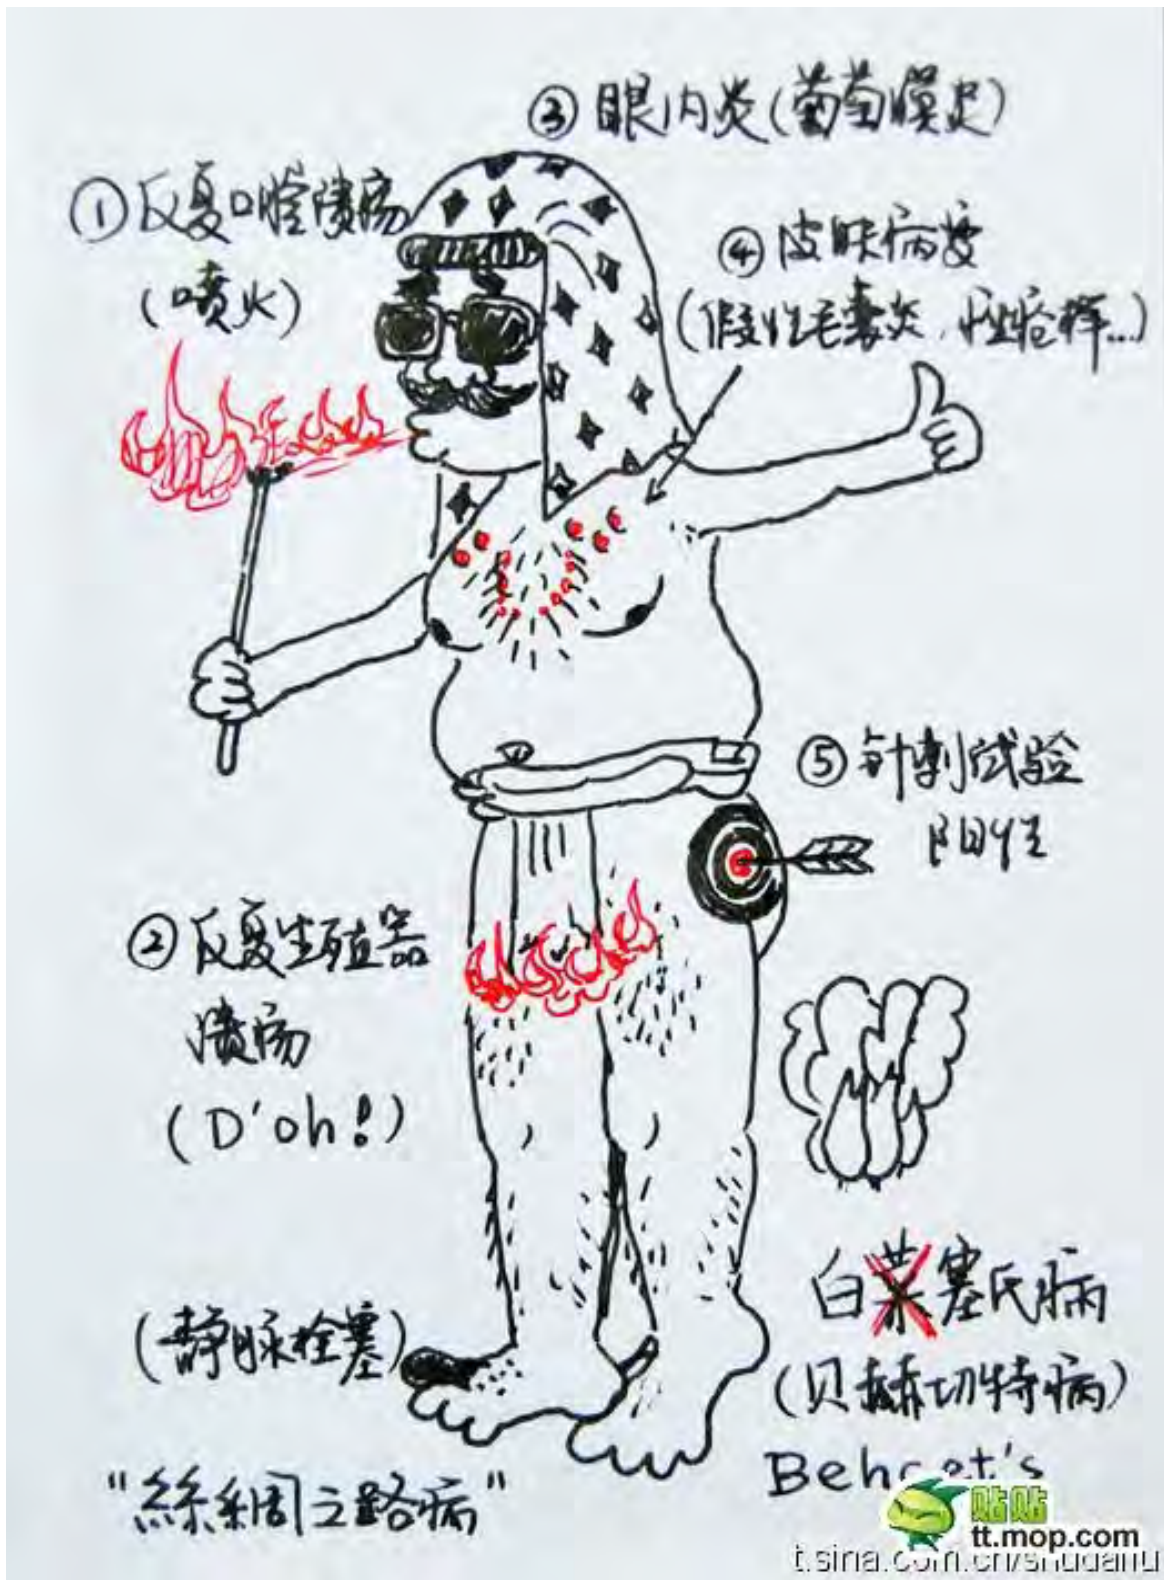 ③ 眼内炎(葡萄膜炎)
① 反复口腔溃疡
(喷火)
④ 皮肤病变
(假性毛囊炎,痤疮样...)
⑤ 针刺试验
阳性
② 反复生殖器
溃疡
(D'oh!)
白菜塞氏病
(静脉栓塞)
(贝赫切特病)
Behcet's
"絲綢之路病"
贴贴
tt.mop.com
t.sina.com.cn/shudanu